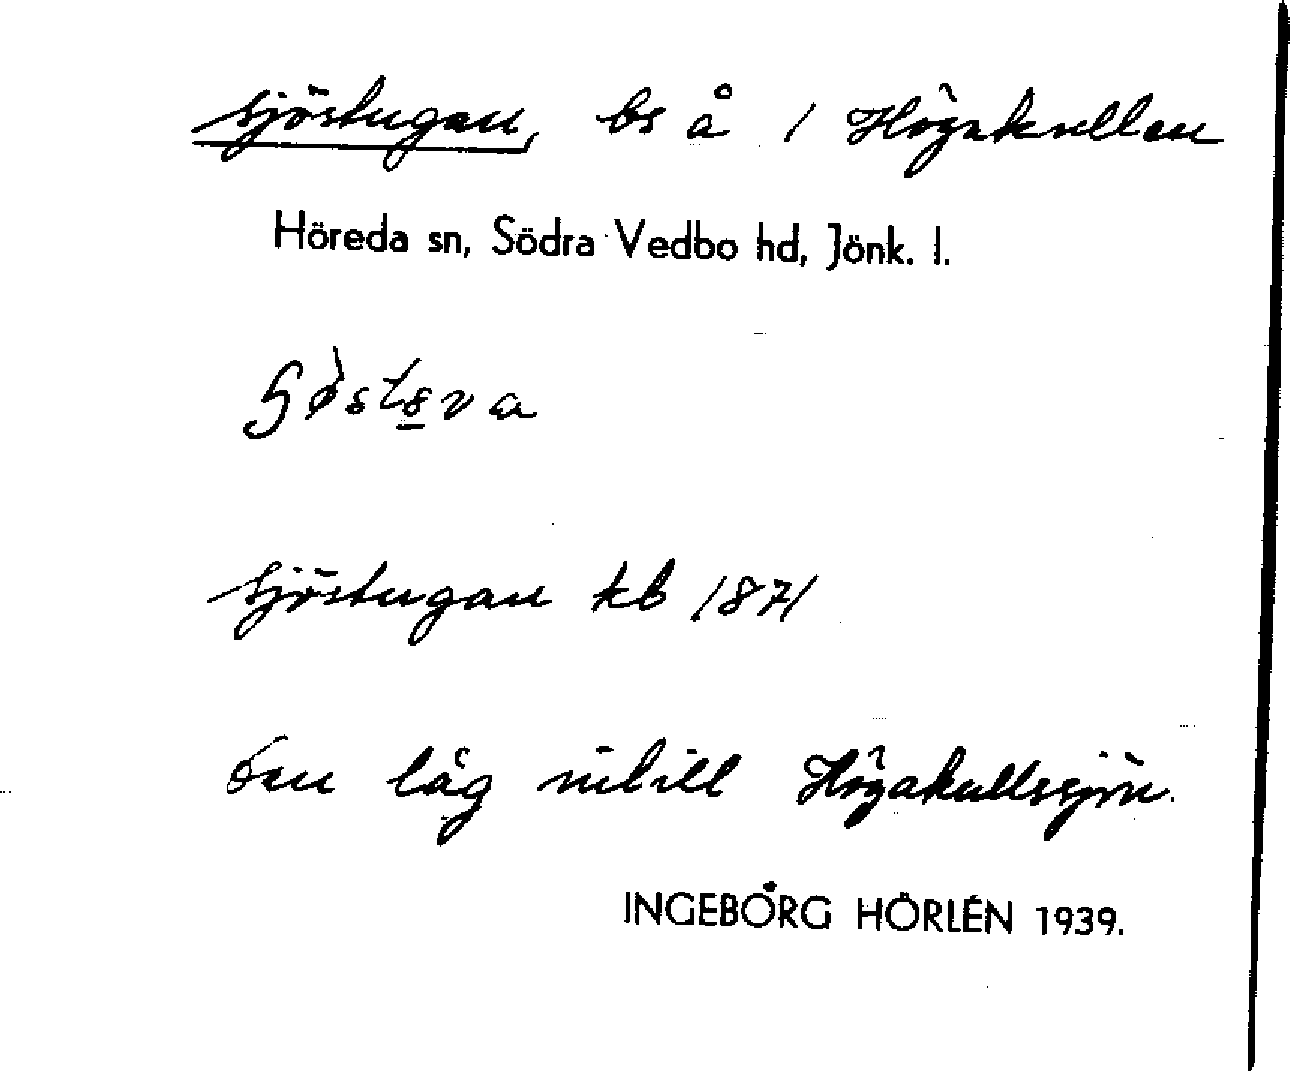 Sjöstugan, bs å 1 Högakullen
Höreda sn, Södra Vedbo hd, Jönk. l.
Sjöstugan kb 1871
Den låg intill Högakullssjön.
INGEBORG HÖRLÉN 1939.